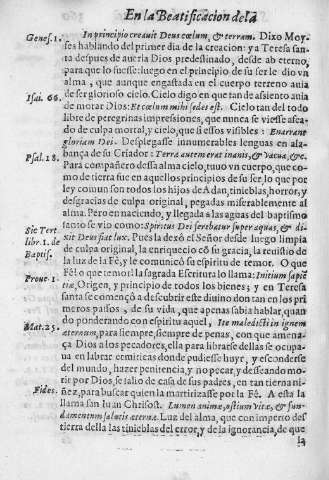 En la Beatificacion dela
Genes. 1. In principio creauit Deus cœlum, & terram. Dixo Moy-
ses hablando del primer dia de la creacion: ya Teresa san-
ta despues de auerla Dios predestinado, desde ab eterno,
para que lo fuesse: luego en el principio de su ser le dio vn
alma, que aunque engastada en el cuerpo terreno auia
de ser glorioso cielo. Cielo digo en que tan de asiento auia
Isai. 66. de morar Dios: Et cœlum mihi sedes est. Cielo tan del todo
libre de peregrinas impresiones, que nunca se viesse afea-
do de culpa mortal, y cielo, que si essos visibles: Enarrant
gloriam Dei. Desplegasse innumerables lenguas en ala-
Psal. 18. bança de su Criador: Terra autem erat inanis, & vacua, &c.
Para compañero desta alma cielo, tuuo vn cuerpo, que co-
mo de tierra fue en aquellos principios de su ser, lo que por
ley comun son todos los hijos de Adan, tinieblas, horror, y
desgracias de culpa original, pegadas miserablemente al
alma. Pero en naciendo, y llegada a las aguas del baptismo
Sic Tert santo se vio como: Spiritus Dei ferebatur super aquas, & di-
libr. 1. de xit Deus fiat lux. Pues la dexò el Señor desde luego limpia
Baptis. de culpa original, la enriquecio cõ su gracia, la reuistio de
la luz de la Fê, y le comunicô su espiritu de temor. O que
Prou. 1. Fê! o que temor! la sagrada Escritura lo llama: Initium sapiẽ
tiæ, Origen, y principio de todos los bienes; y en Teresa
santa se començò a descubrir este diuino don tan en los pri-
meros passos, de su vida, que apenas sabia hablar, quan-
Mat. 25. do ponderando con espiritu aquel, Ite maledicti in ignem
æternum, para siempre, siempre de penas, con que amena-
ça Dios a los pecadores, ella para librarse dellas se ocupa-
ua en labrar ermiticas donde pudiesse huyr, y esconderse
del mundo, hazer penitencia, y no pecar, y desseando mo-
rir por Dios, se salio de casa de sus padres, en tan tierna ni-
Fides. ñez, para buscar quien la martirizasse por la Fê. A esta la
llama san Iuan Chrisost. Lumen animæ, ostium vitæ, & fun-
damentum salutis æternæ. Luz del alma, que con imperio des
tierra della las tinieblas del error, y de la ignorancia, de que
la